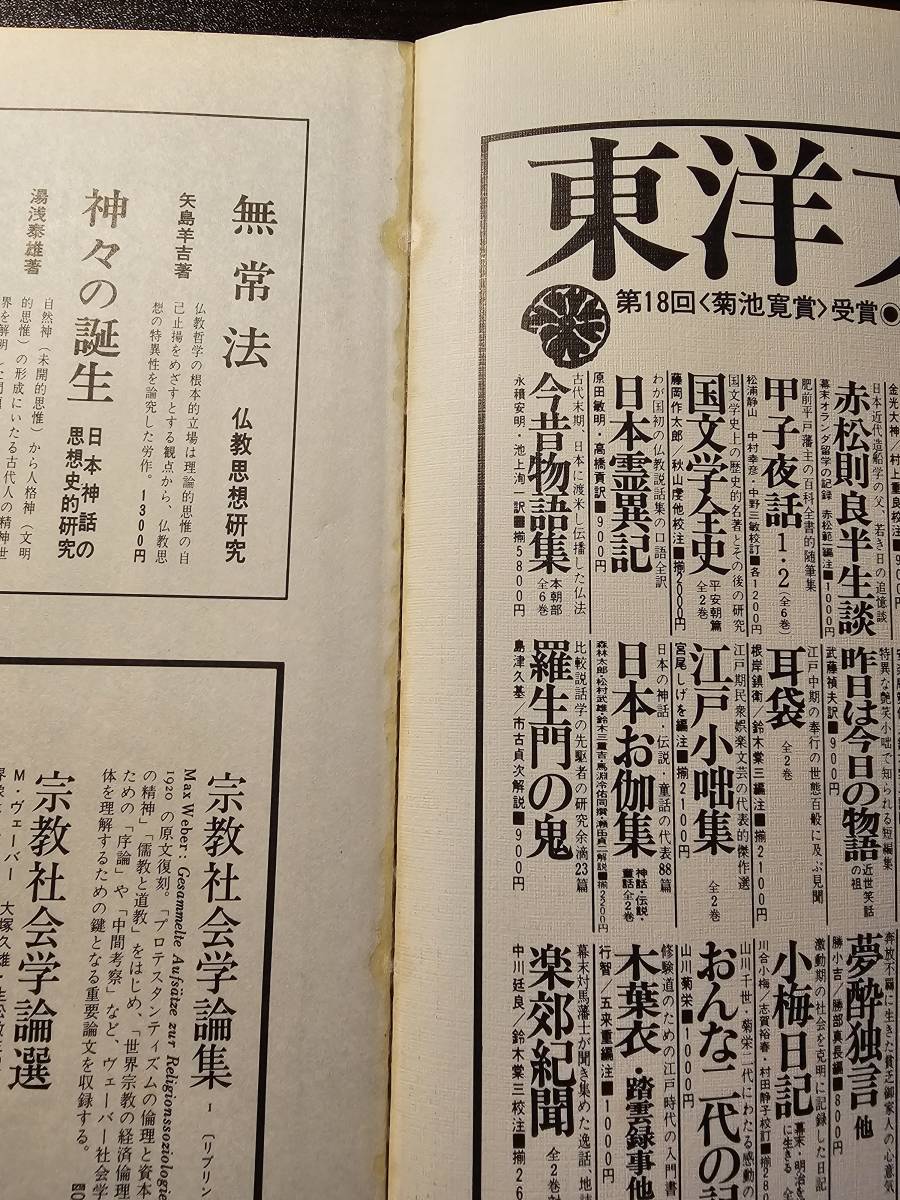 東洋
第18回〈菊池寛賞〉受賞●
金光大神/村上重良校注■90
日本近代造船学の父、若き日の追憶談
赤松則良半生談
幕末オランダ留学の記録 赤松範一編注■1000円
肥前平戸藩主の百科全書的随筆集
甲子夜話 1・2(全6巻)
松浦静山 中村幸彦・中野三敏校訂■各1200円
国文学史上の歴史的名著とその後の研究
国文学全史 平安朝篇 全2巻
藤岡作太郎/秋山虔他校注■揃2000円
わが国初の仏教説話集の口語全訳
日本霊異記
原田敏明・高橋貢訳■900円
古代末期、日本に渡来し伝播した仏法
今昔物語集 本朝部 全6巻
永積安明・池上洵一訳■揃5800円
特異な艶笑小咄で知られる短編集
昨日は今日の物語 近世笑話の祖
武藤禎夫訳■900円
江戸中期の奉行の世態百般に及ぶ見聞
耳袋 全2巻
根岸鎮衛/鈴木棠三編注■揃2100円
江戸期民衆娯楽文芸の代表的傑作選
江戸小咄集 全2巻
宮尾しげを編注■揃2100円
日本の神話・伝説・童話の代表88篇
日本お伽集 神話・伝説・童話 全2巻
森林太郎・松村武雄・鈴木三重吉・馬淵冷佑同撰・瀬田貞二解説■揃2200円
比較説話学の先駆者の研究余滴23篇
羅生門の鬼
島津久基/市古貞次解説■900円
奔放不羈に生きた貧乏御家人の心意気
夢酔独言 他
勝小吉/勝部真長編■800円
激動期の社会を克明に記録した日記
小梅日記 幕末・明治を
に生きる
川合小梅/志賀裕春・村田静子校訂■揃28
山川千世・菊栄二代にわたる感動の
おんな二代の記
山川菊栄■1000円
修験道のための江戸時代の入門書
木葉衣・踏雲録事他
行智/五来重編注■1000円
幕末対馬藩士が聞き集めた逸話、地誌
楽郊紀聞 全2巻
中川延良/鈴木棠三校注■揃26
無常法 仏教思想研究
矢島羊吉著
仏教哲学の根本的立場は理論的思惟の自
己止揚をめざすとする観点から、仏教思
想の特異性を論究した労作。1300円
神々の誕生 日本神話の
思想史的研究
湯浅泰雄著
自然神(未開的思惟)から人格神(文明
的思惟)の形成にいたる古代人の精神世
宗教社会学論集 I (リプリン
Max Weber: Gesammelte Aufsätze zur Religionssoziologie
1920 の原文復刻。「プロテスタンティズムの倫理と資本
の精神」「儒教と道教」をはじめ、「世界宗教の経済倫理
ための「序論」や「中間考察」など、ヴェーバー社会学
体を理解するための鍵となる重要論文を収録する。
宗教社会学論選
M・ヴェーバー 大塚久雄・生松敬三